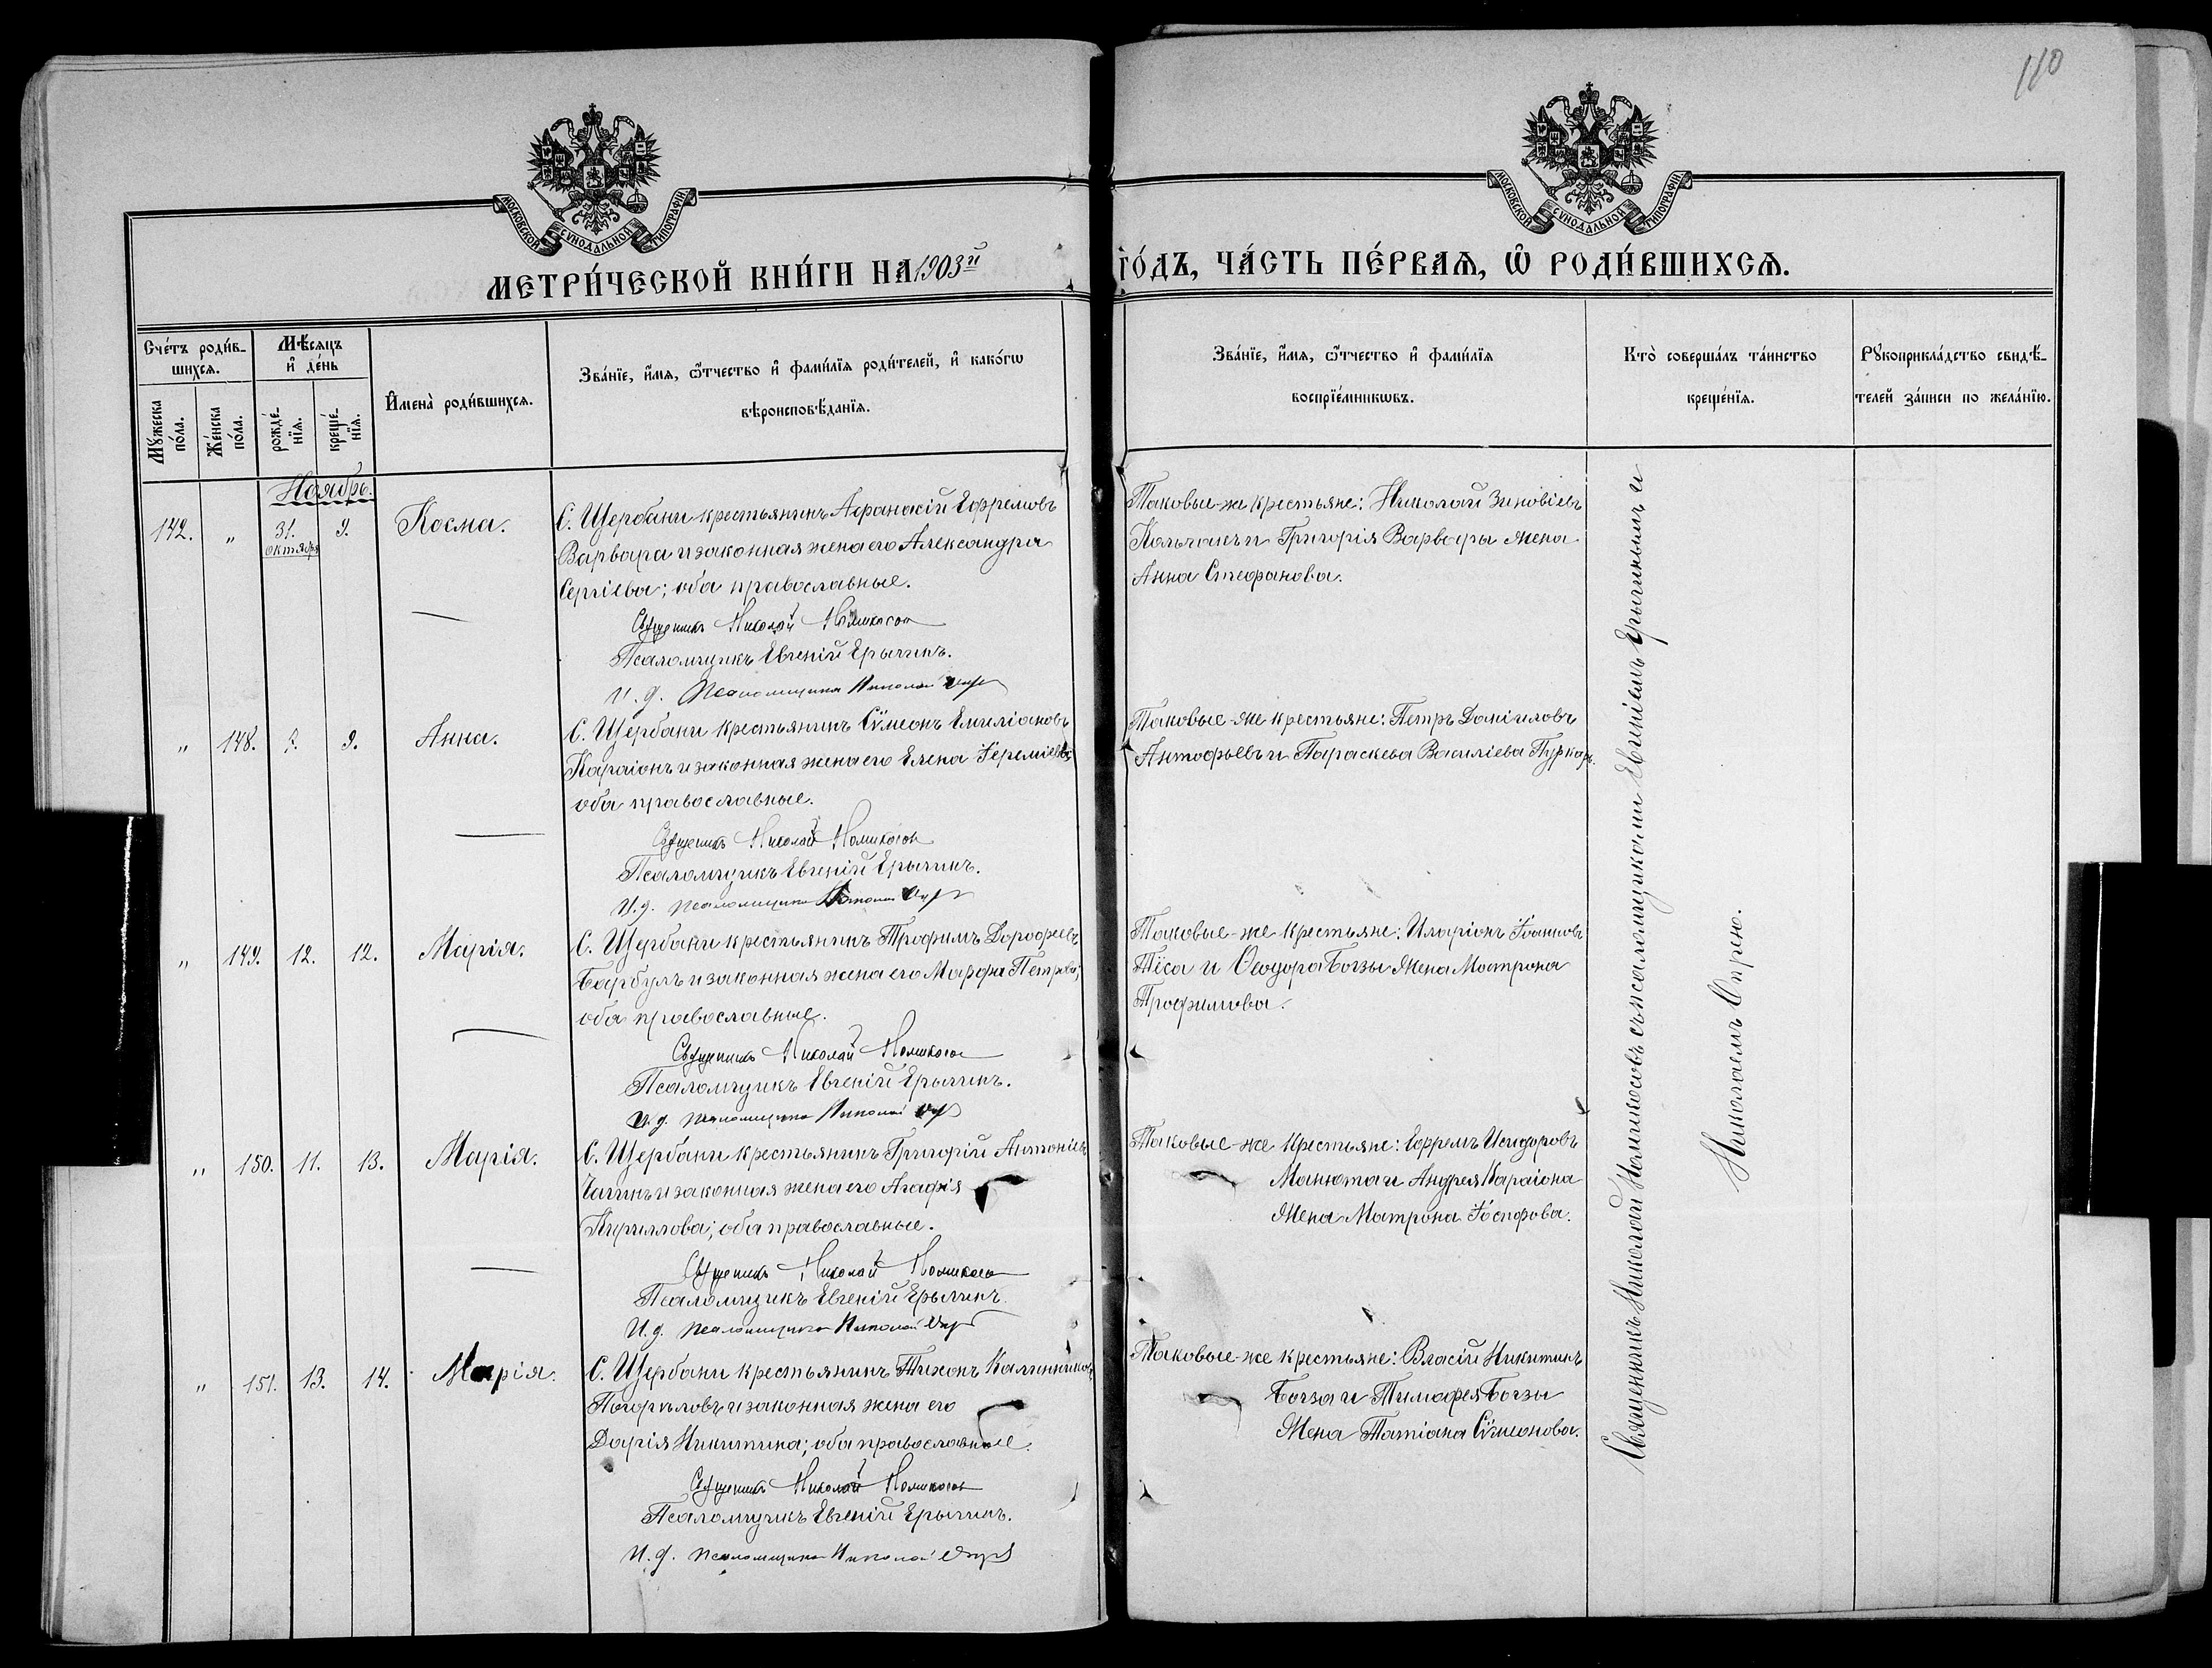 110
МОСКОВСКОЙ СѴНОДАЛЬНОЙ ТИПОГРАФІИ
МОСКОВСКОЙ СѴНОДАЛЬНОЙ ТИПОГРАФІИ
МЕТРИ́ЧЕСКОЙ КНИ́ГИ НА 1903й
ГО́ДЪ, ЧА́СТЬ ПЕ́РВАѦ, Ѡ РОДИ́ВШИХСѦ.
Сче́тъ роди́в-
шихсѧ.
Мꙋ́жеска по́ла.
Же́нска по́ла.
Мѣ́сѧцъ
и҆ де́нь
рожде́-
нїѧ.
креще́-
нїѧ.
И҆мена̀ роди́вшихсѧ.
Зва́нїе, и҆́мѧ, ѻ҆́тчество и҆ фами́лїѧ роди́телей, и҆ како́гѡ
вѣроисповѣ́данїѧ.
Зва́нїе, и҆́мѧ, ѻ҆́тчество и҆ фами́лїѧ
воспрїе́мникѡвъ.
Кто̀ соверша́лъ та́инство
креще́нїѧ.
Рꙋкоприкла́дство свидѣ́-
телей за́писи по жела́нїю.
Ноябрь.
142. " 31. октября 9. Косма.
С. Щербани крестьянинъ Афанасій Ефремовъ
Варвара и законная жена его Александра
Сергіева; оба православные.
Священникъ Николай Номикосов
Псаломщикъ Евгеній Ерычинъ.
И. д. Псаломщика Николай
Таковые-же крестьяне: Николай Зиновіевъ
Кольчакъ и Григорія Варвары жена
Анна Стефанова.
" 148. 9. Анна.
С. Щербани крестьянинъ Сѵмеонъ Емиліановъ
Караіонъ и законная жена его Елена Іереміева;
оба православные.
Священникъ Николай Номикосов
Псаломщикъ Евгеній Ерычинъ.
И. д. псаломщика Николай
Таковые-же крестьяне: Петръ Даніиловъ
Антофьевъ и Параскева Василіева Пуркарь.
" 149. 12. 12. Марія.
С. Щербани крестьянинъ Трофимъ Дорофеевъ
Барбулъ и законная жена его Марфа Петрова;
оба православные.
Священникъ Николай Номикосов
Псаломщикъ Евгеній Ерычинъ.
И. д. псаломщика Николай
Таковые-же крестьяне: Иларіонъ Іоанновъ
Тёса и Ѳеодора Богзы жена Матрона
Трофимова.
" 150. 11. 13. Марія.
С. Щербани крестьянинъ Григорій Антоніевъ
и законная жена его Агафія
Кириллова; оба православные.
Священникъ Николай Номикосов
Псаломщикъ Евгеній Ерычинъ
И. д. псаломщика Николай
Таковые-же крестьяне: Ефремъ Исидоровъ
Манюта и Андрея Караіона
жена Матрона Іосифова.
" 151. 13. 14. Марія.
С. Щербани крестьянинъ Тихонъ Калинниковъ
Погорѣловъ и законная жена его
Дарія Никитина; оба православные.
Священникъ Николай Номикосов
Псаломщикъ Евгеній Ерычинъ.
И. д. псаломщика Николай
Таковые-же крестьяне: Власій Никитинъ
Богза и Тимофея Богзы
жена Татіана Сѵмеонова.
Священникъ Николай Номикосовъ съ псаломщиками Евгеніемъ Ерычинымъ и
Николаемъ Опрею.